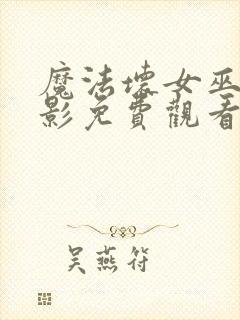 魔法壞女巫
影免費觀看
吳燕符